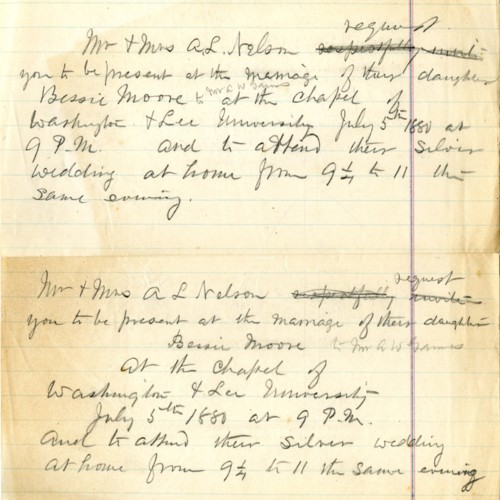 request
Mr & Mrs A. L. Nelson respectfully invite
you to be present at the marriage of their daughter
Bessie Moore to Mr A W Gaines at the chapel of
Washington & Lee University July 5th 1880 at
9 P.M. and to attend their silver
wedding at home from 9¼ to 11 the
same evening.
request
Mr & Mrs A L Nelson respectfully invite
you to be present at the marriage of their daughter
Bessie Moore to Mr A W Gaines
at the chapel of
Washington & Lee University
July 5th 1880 at 9 P.M.
and to attend their silver wedding
at home from 9¼ to 11 the same evening